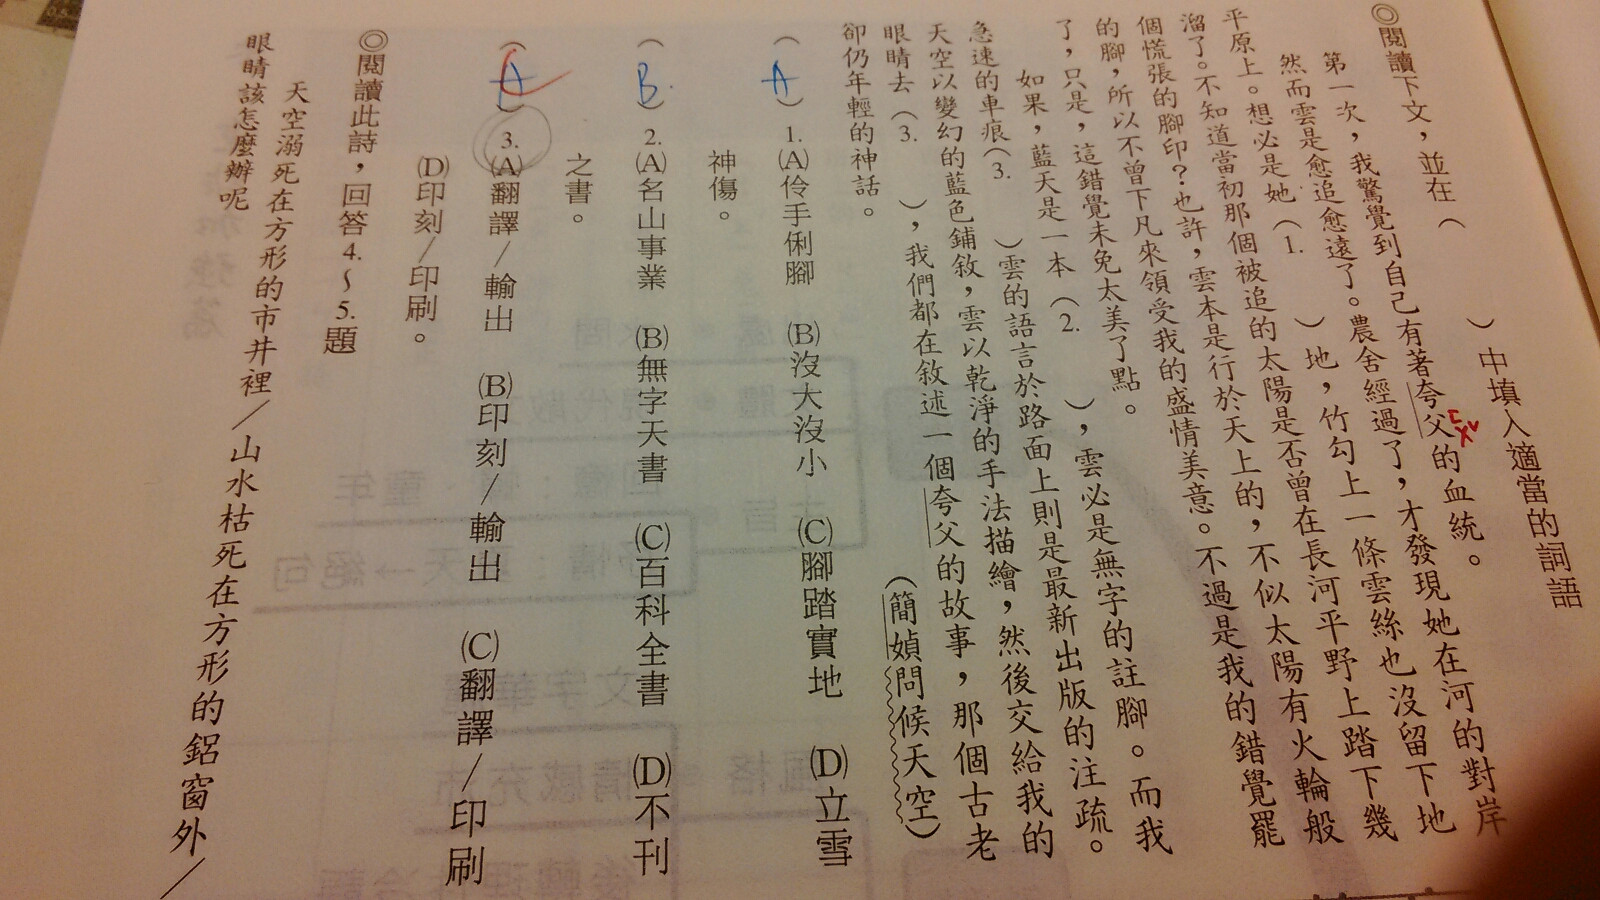 ◎閱讀下文,並在( )中填入適當的詞語
第一次,我驚覺到自己有著夸父的血統。
ㄈㄨˇ
然而雲是愈追愈遠了。農舍經過了,才發現她在河的對岸
平原上。想必是她(1. )地,竹勾上一條雲絲也沒留下地
溜了。不知道當初那個被追的太陽是否曾在長河平野上踏下幾
個慌張的腳印?也許,雲本是行於天上的,不似太陽有火輪般
的腳,所以不曾下凡來領受我的盛情美意。不過是我的錯覺罷
了,只是,這錯覺未免太美了點。
如果,藍天是一本(2. ),雲必是無字的註腳。而我
急速的車痕(3. )雲的語言於路面上則是最新出版的注疏。
天空以變幻的藍色鋪敘,雲以乾淨的手法描繪,然後交給我的
眼睛去(3. ),我們都在敘述一個夸父的故事,那個古老
卻仍年輕的神話。 (簡媜問候天空)
(A)1.(A)伶手俐腳 (B)沒大沒小 (C)腳踏實地 (D)立雪
神傷。
(B)2.(A)名山事業 (B)無字天書 (C)百科全書 (D)不刊
之書。
(A)3.(A)翻譯/輸出 (B)印刻/輸出 (C)翻譯/印刷
(D)印刻/印刷。
◎閱讀此詩,回答4.~5.題
天空溺死在方形的市井裡/山水枯死在方形的鋁窗外/
眼睛該怎麼辦呢